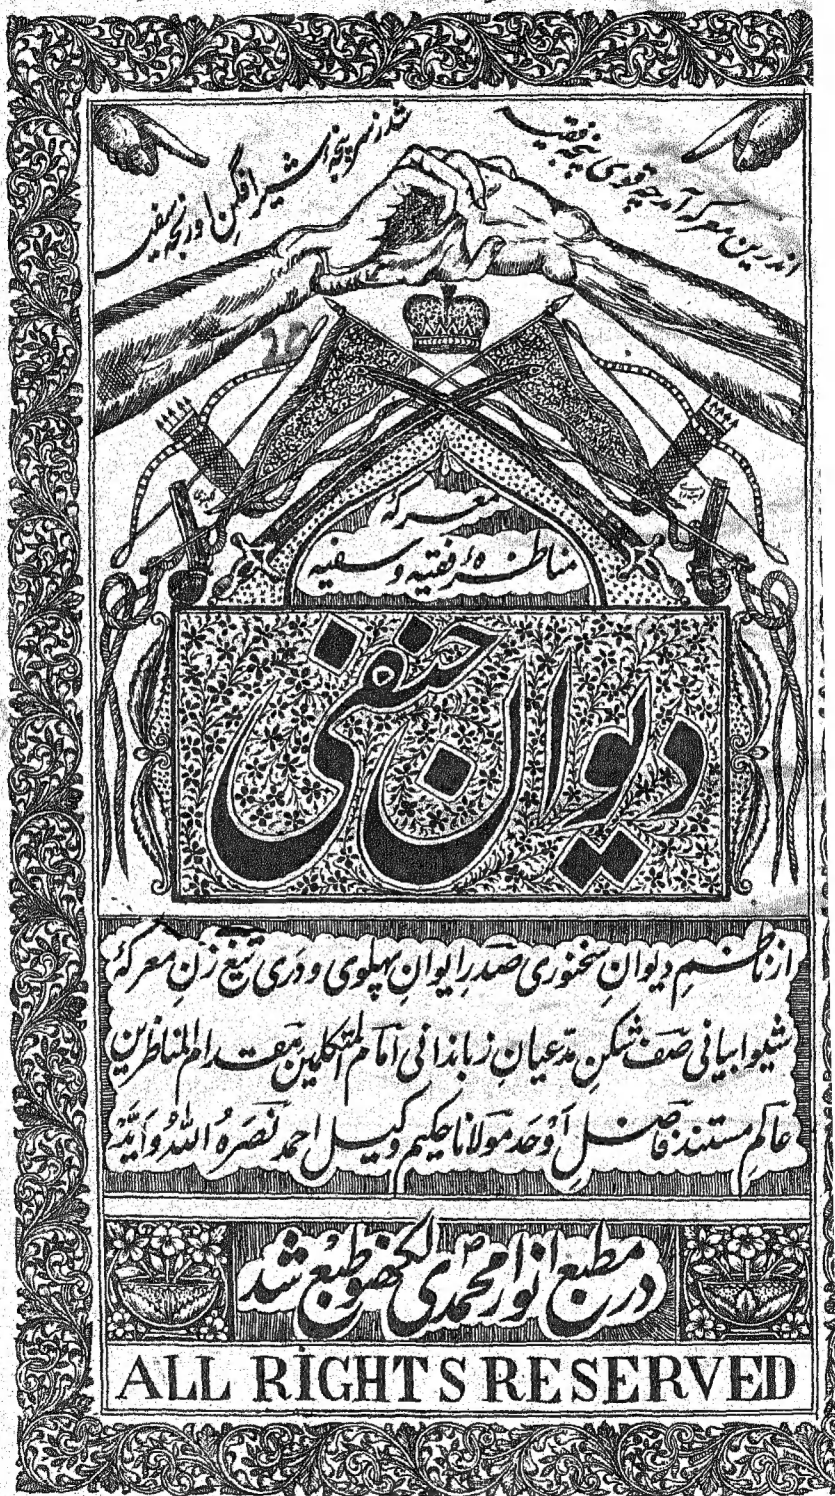 اندرین معرکه آمد چه قوی پنجه فقیه
شد ز سر پنجهٔ شیر افگن او رنجه سفیه
معرکهٔ
مناظرهٔ فقیه و سفیه
دیوان حنفی
از ناظمِ دیوانِ سخنوری صدرِ ایوانِ پهلوی و دَری تیغ زنِ معرکهٔ
شیوا بیانی صف شکنِ مدّعیانِ زباندانی امام المتکلمین مقدام المناظرین
عالمِ مستند فاضلِ اَوحَد مولانا حکیم وکیل احمد نَصَرَهُ اللهُ وَاَیَّدَهُ
در مطبع انوار محمدی لکھنؤ طبع شد
ALL RIGHTS RESERVED